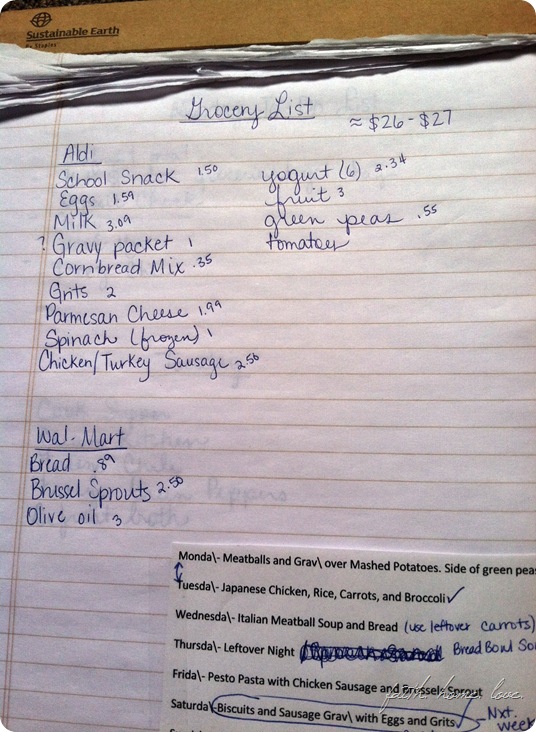 Sustainable Earth
By Staples
Grocery List
≈ $26-$27
Aldi
School Snack 1.50
Eggs 1.59
Milk 3.09
? Gravy packet 1
Cornbread Mix .35
Grits 2
Parmesan Cheese 1.99
Spinach (frozen) 1
Chicken/Turkey Sausage 2.50
yogurt (6) 2.34
fruit 3
green peas .55
tomatoes
Wal-Mart
Bread .89
Brussel Sprouts 2.50
Olive oil 3
Monda\- Meatballs and Grav\ over Mashed Potatoes. Side of green peas
Tuesda\- Japanese Chicken, Rice, Carrots, and Broccoli ✓
Wednesda\- Italian Meatball Soup and Bread (use leftover carrots)
Thursda\- Leftover Night Bread Bowl
Frida\- Pesto Pasta with Chicken Sausage and Brussels Sprout
Saturda\- Biscuits and Sausage Grav\ with Eggs and Grits - Nxt. week
faith. home. love.